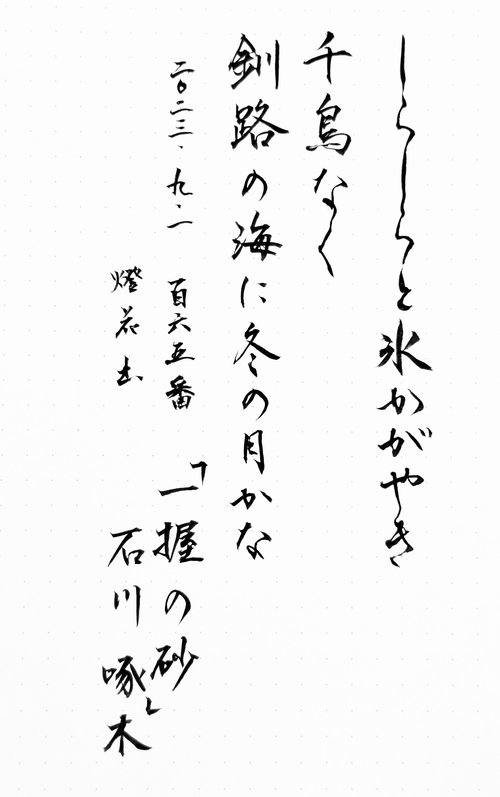 しらしらと氷かがやき
千鳥なく
釧路の海に冬の月かな
二〇二三、九、一
百六五番
燈花書
「一握の砂」
石川啄木